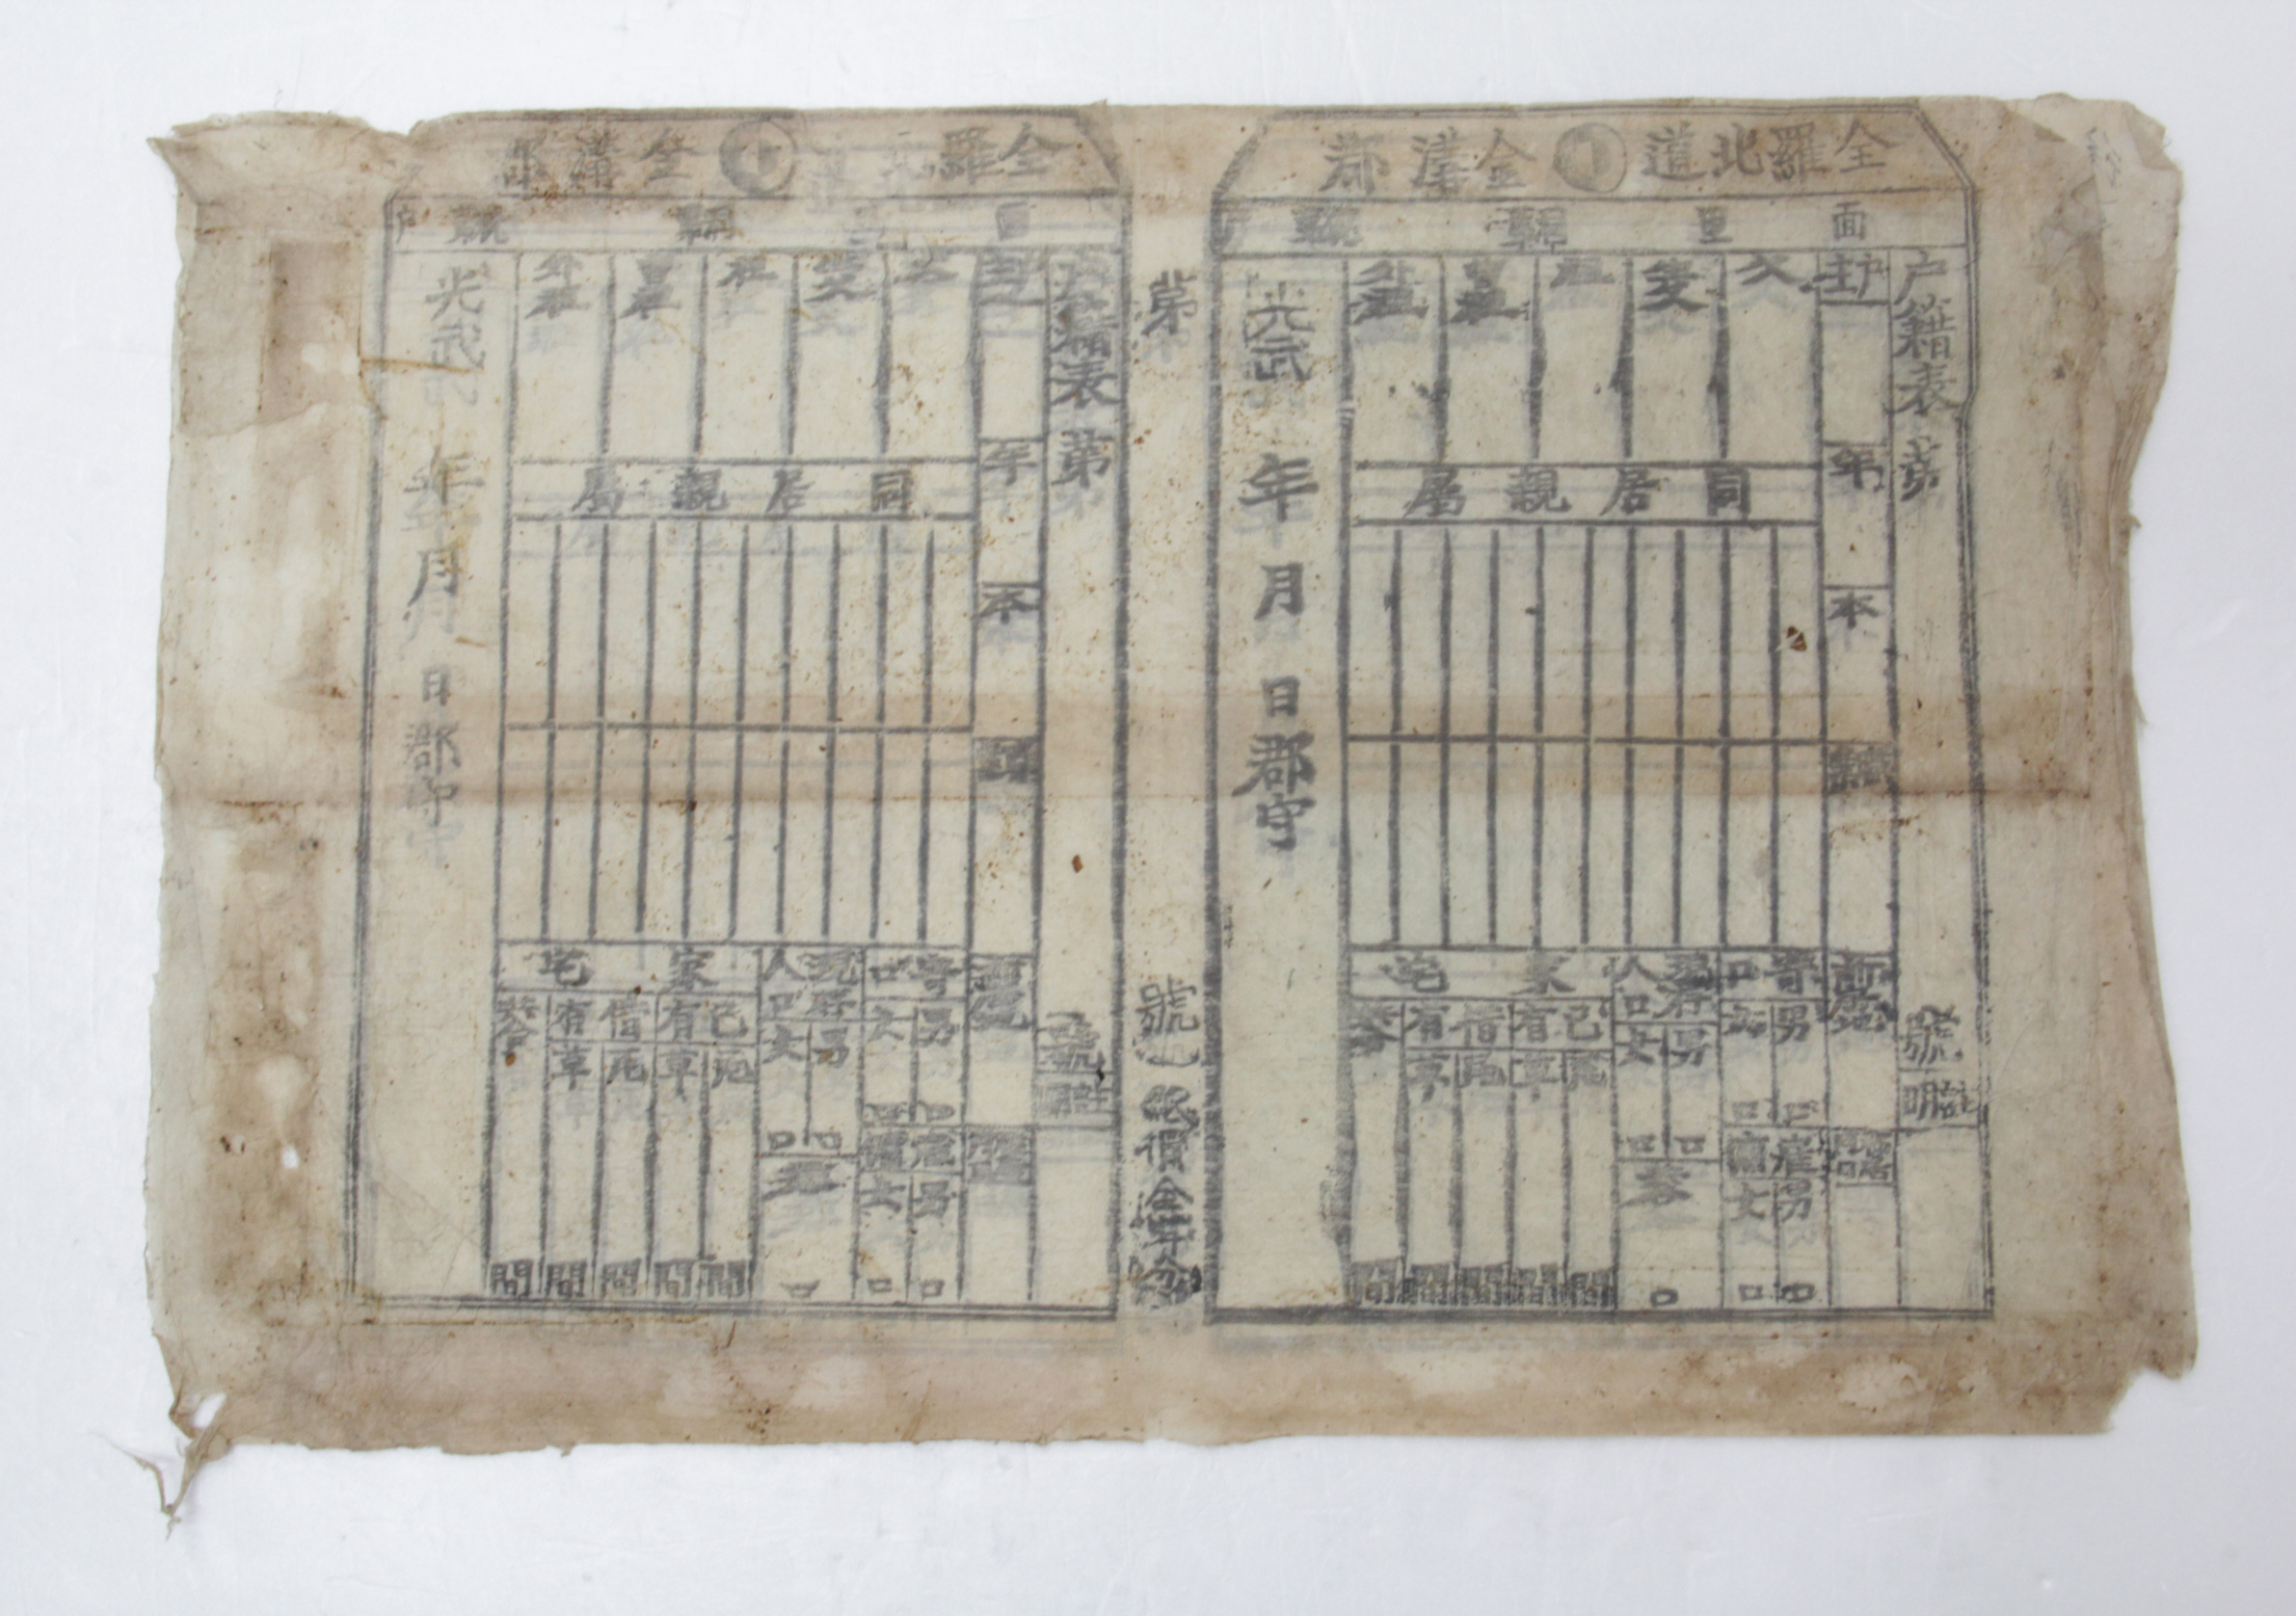 全羅北道 金溝郡
面 里 統 戶
戶籍表 第 號
戶主
年
本
父
生父
祖
曾祖
外祖
同居親屬
寄口
男 口
女 口
雇傭
男 口
女 口
現存人口
男 口
女 口
共 口
家宅
己有
瓦 間
草 間
借有
瓦 間
草 間
共合 間
光武 年 月 日 郡守
第 號 紙價金 分
全羅北道 金溝郡
面 里 統 戶
戶籍表 第 號
年
本
父
生父
祖
曾祖
外祖
同居親屬
寄口
男 口
女 口
男 口
女 口
現存人口
男 口
女 口
共 口
家宅
己有
瓦 間
草 間
借有
瓦 間
草 間
共合 間
光武 年 月 日 郡守